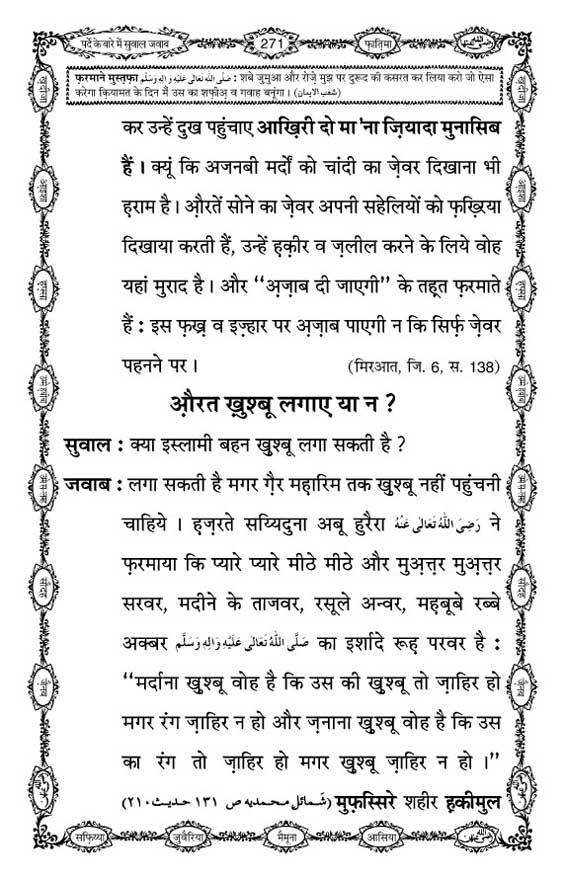 पर्दे के बारे में सुवाल जवाब
271
फ़ातिमा
फ़रमाने मुस्तफ़ा صَلَّى اللهُ تَعَالٰى عَلَيْهِ وَاٰلِهٖ وَسَلَّم : शबे जुमुआ और रोज़े मुझ पर दुरूद की कसरत कर लिया करो जो ऐसा
करेगा क़ियामत के दिन मैं उस का शफ़ीअ़ व गवाह बनूंगा। (شعب الایمان)
कर उन्हें दुख पहुंचाए आख़िरी दो मा'ना ज़ियादा मुनासिब
हैं । क्यूं कि अजनबी मर्दों को चांदी का ज़ेवर दिखाना भी
ह़राम है। औ़रतें सोने का ज़ेवर अपनी सहेलियों को फ़ख़्रिया
दिखाया करती हैं, उन्हें ह़क़ीर व ज़लील करने के लिये वोह
यहां मुराद है। और ‘‘अ़ज़ाब दी जाएगी’’ के तह़त फ़रमाते
हैं : इस फ़ख़्र व इज़्हार पर अ़ज़ाब पाएगी न कि सिर्फ़ ज़ेवर
पहनने पर । (मिरआत, जि. 6, स. 138)
औ़रत ख़ुश्बू लगाए या न ?
सुवाल : क्या इस्लामी बहन ख़ुश्बू लगा सकती है ?
जवाब : लगा सकती है मगर ग़ैर मह़ारिम तक ख़ुश्बू नहीं पहुंचनी
चाहिये । ह़ज़रते सय्यिदुना अबू हुरैरा رَضِىَ اللهُ تَعَالٰى عَنْهُ ने
फ़रमाया कि प्यारे प्यारे मीठे मीठे और मुअ़त्त़र मुअ़त्त़र
सरवर, मदीने के ताजवर, रसूले अन्वर, मह़बूबे रब्बे
अक्बर صَلَّى اللهُ تَعَالٰى عَلَيْهِ وَاٰلِهٖ وَسَلَّم का इर्शादे रूह़ परवर है :
‘‘मर्दाना ख़ुश्बू वोह है कि उस की ख़ुश्बू तो ज़ाहिर हो
मगर रंग ज़ाहिर न हो और ज़नाना ख़ुश्बू वोह है कि उस
का रंग तो ज़ाहिर हो मगर ख़ुश्बू ज़ाहिर न हो ।’’
(شمائل محمدیه ص ١٣١ حدیث ٢١٠) मुफ़स्सिरे शहीर ह़कीमुल
सफ़िय्या
जुवैरिया
मैमूना
आसिया